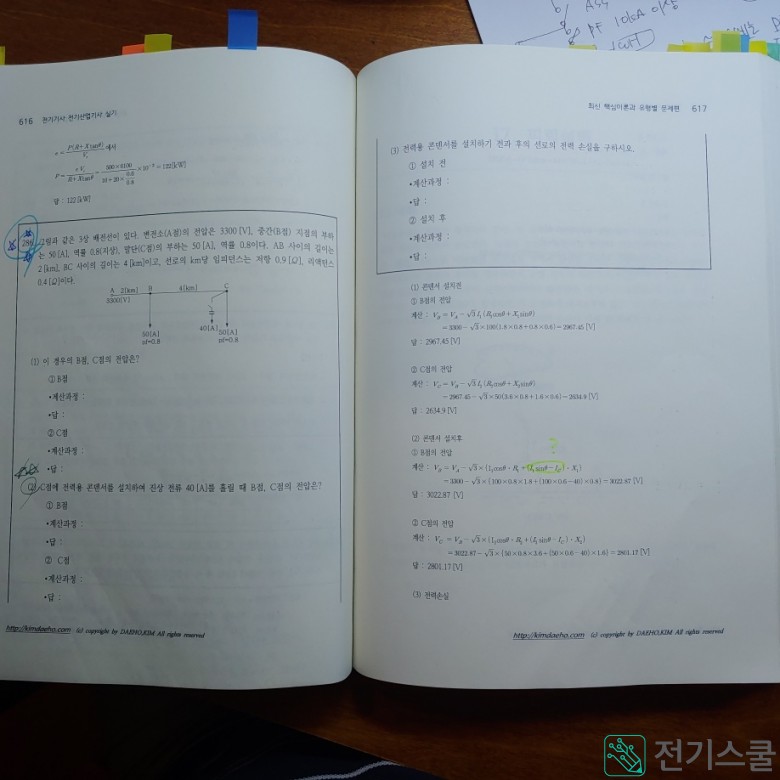 616 전기기사·전기산업기사 실기
e = P(R+Xtanθ)/Vr 에서
P = eVr/(R+Xtanθ) = ×10⁻³ = 122[kW]
답 : 122[kW]
286 그림과 같은 3상 배전선이 있다. 변전소(A점)의 전압은 3300 [V], 중간(B점) 지점의 부하
는 50 [A], 역률 0.8(지상), 말단(C점)의 부하는 50 [A], 역률 0.8이다. AB 사이의 길이는
2 [km], BC 사이의 길이는 4 [km]이고, 선로의 km당 임피던스는 저항 0.9 [Ω], 리액턴스
0.4 [Ω]이다.
A 2[km] B 4[km] C
3300[V]
40[A]
50[A] 50[A]
pf=0.8 pf=0.8
(1) 이 경우의 B점, C점의 전압은?
① B점
•계산과정 :
•답 :
② C점
•계산과정 :
•답 :
(2) C점에 전력용 콘덴서를 설치하여 진상 전류 40 [A]를 흘릴 때 B점, C점의 전압은?
① B점
•계산과정 :
•답 :
② C점
•계산과정 :
•답 :
http://kimdaeho.com (c) copyright by DAEHO.KIM All rights reserved
최신 핵심이론과 유형별 문제편 617
(3) 전력용 콘덴서를 설치하기 전과 후의 선로의 전력 손실을 구하시오.
① 설치 전
•계산과정 :
•답 :
② 설치 후
•계산과정 :
•답 :
(1) 콘덴서 설치전
① B점의 전압
계산 : V_B = V_A − √3 I₁(R₁cosθ + X₁sinθ)
= 3300 − √3 × 100(1.8×0.8+0.8×0.6) = 2967.45 [V]
답 : 2967.45 [V]
② C점의 전압
계산 : V_C = V_B − √3 I₂(R₂cosθ + X₂sinθ)
= 2967.45 − √3 × 50(3.6×0.8+1.6×0.6) = 2634.9 [V]
답 : 2634.9 [V]
?
(2) 콘덴서 설치후
① B점의 전압
계산 : V_B = V_A − √3 × {I₁cosθ · R₁ + (I₁sinθ − I_C) · X₁}
= 3300 − √3 × {100×0.8×1.8+(100×0.6−40)×0.8} = 3022.87 [V]
답 : 3022.87 [V]
② C점의 전압
계산 : V_C = V_B − √3 × {I₂cosθ · R₂ + (I₂sinθ − I_C) · X₂}
= 3022.87 − √3 × {50×0.8×3.6+(50×0.6−40)×1.6} = 2801.17 [V]
답 : 2801.17 [V]
(3) 전력손실
http://kimdaeho.com (c) copyright by DAEHO.KIM All rights reserved
전기스쿨